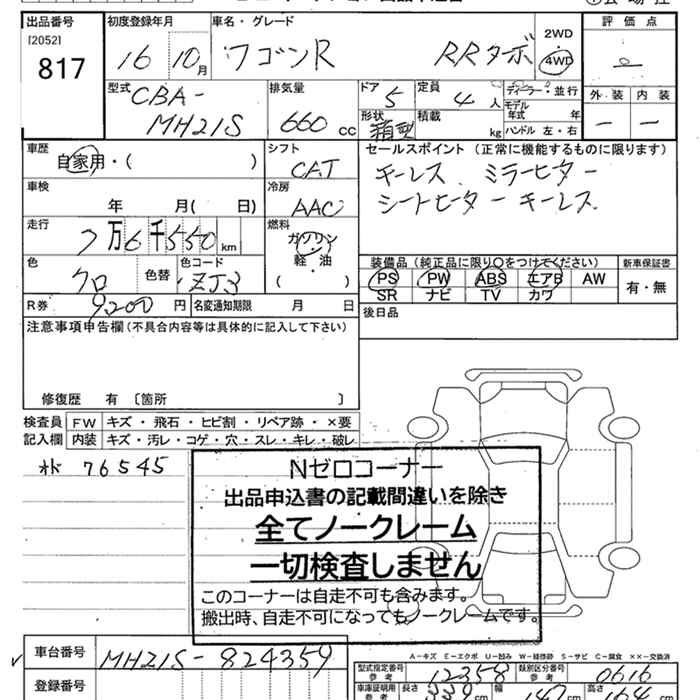 出品番号 初度登録年月 車名・グレード 評価点
[2052]
817
16 10月 ワゴンR RRターボ 2WD 4WD
外装 内装
型式 CBA-MH21S
排気量 660cc
ドア 5
定員 4人
ディーラー・並行
モデル年式 年
形状 箱型
積載 kg
ハンドル 左・右
車歴 自家用・( )
シフト CAT
セールスポイント(正常に機能するものに限ります)
キーレス ミラーヒーター
シートヒーター キーレス
車検 年 月( 日)
冷房 AAC
走行 7万6千550km
燃料 ガソリン・軽油・( )
色 クロ 色替 色コード ZJ3
装備品(純正品に限り○をつけてください) 新車保証書
PS PW ABS エアB AW 有・無
SR ナビ TV カワ
R券 9200円 名変通知期限 月 日
後日品
注意事項申告欄(不具合内容等は具体的に記入して下さい)
修復歴 有〔箇所 〕
検査員記入欄
FW キズ・飛石・ヒビ割・リペア跡・×要
内装 キズ・汚レ・コゲ・穴・スレ・キレ・破レ
76545
Nゼロコーナー
出品申込書の記載間違いを除き
全てノークレーム
一切検査しません
このコーナーは自走不可も含みます。
搬出時、自走不可になってもノークレームです。
A―キズ E―エクボ U―凹み W―補修跡 S―サビ C―腐食 ××―交換済
車台番号 MH21S-824359
型式指定番号参考 12358 類別区分番号参考 0616
登録番号
車庫証明用参考 長さ 339 幅 147 高さ 164